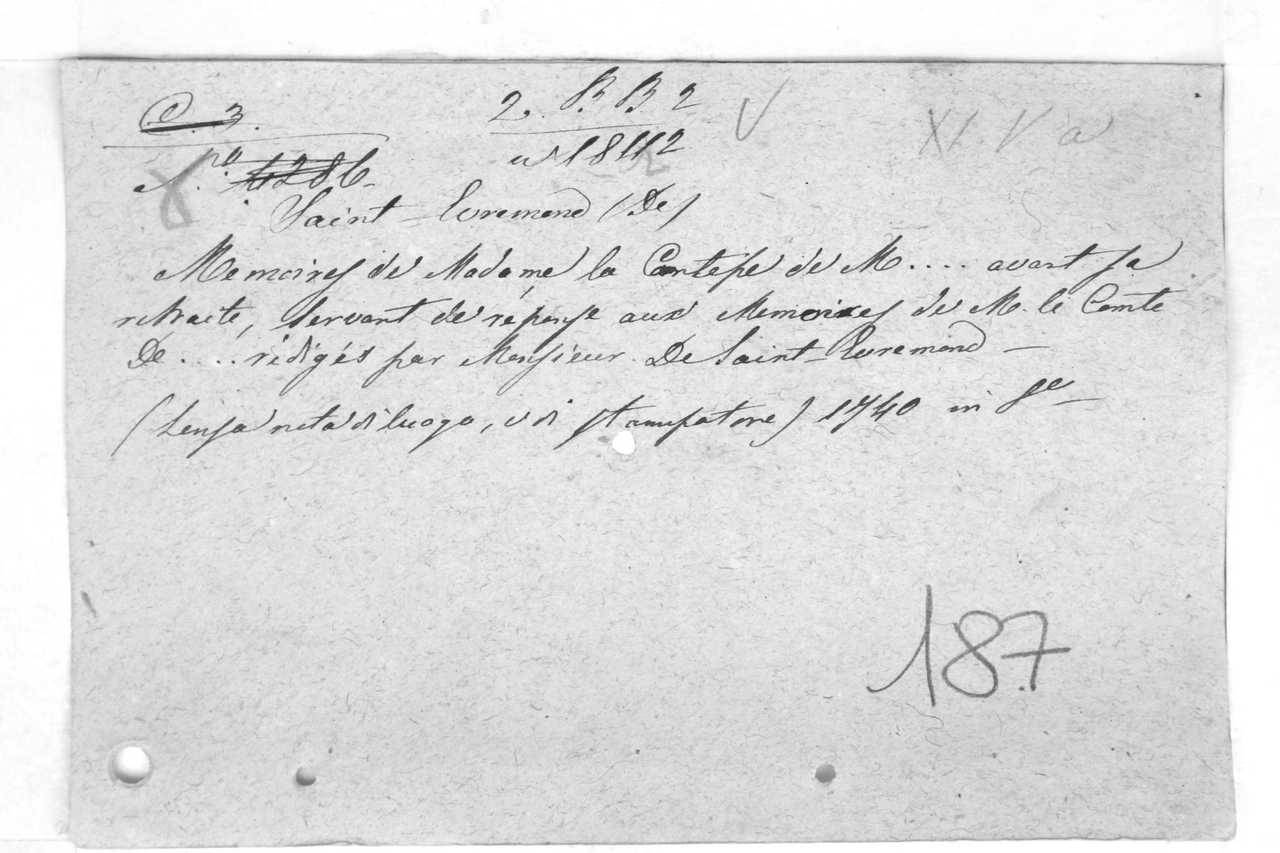 C. 3. 2. B B 2 V XL. V a
N.ro 4286. n. 18112
8
Saint-Evremond (De)
Memoires de Madame la Comtesse de M.... avant sa
retraite, servant de réponse aux Memoires de M. le Comte
De.... rédigés par Monsieur De Saint-Evremond —
(Senza nota di luogo, o di stampatore) 1740 in 8°—
187